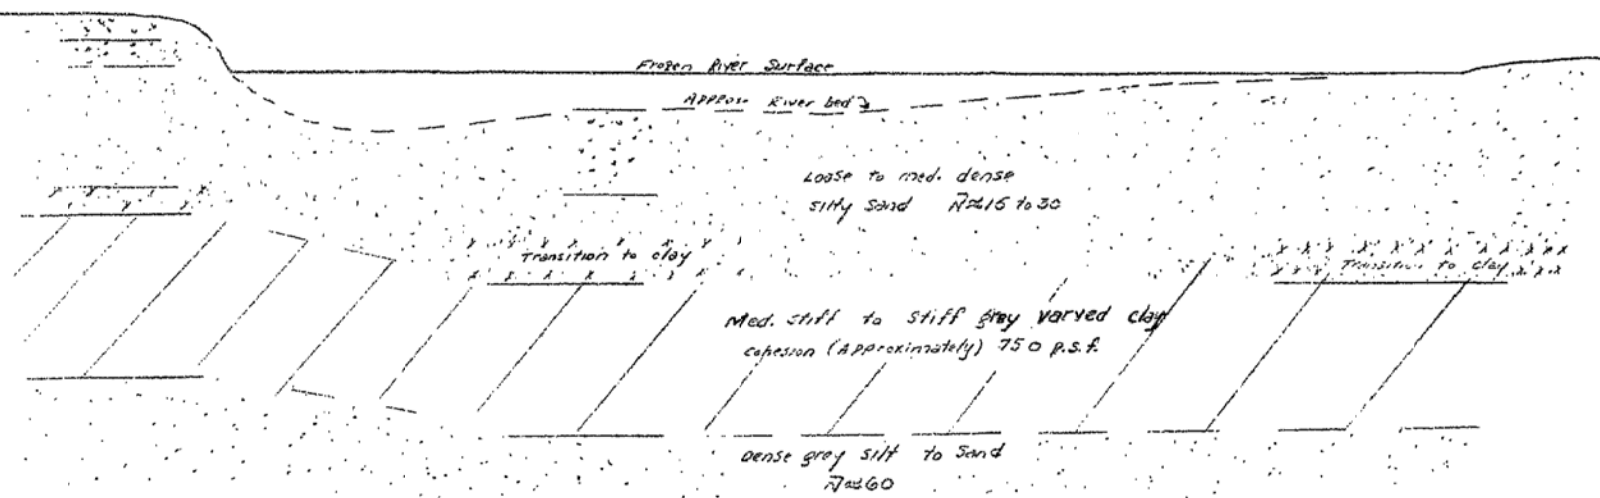 Frozen River Surface
Approx. River bed
Loose to med. dense
silty sand N̄≈15 to 30
Transition to clay
Transition to clay
Med. stiff to stiff grey varved clay
cohesion (Approximately) 750 p.s.f.
Dense grey silt to sand
N̄≈60